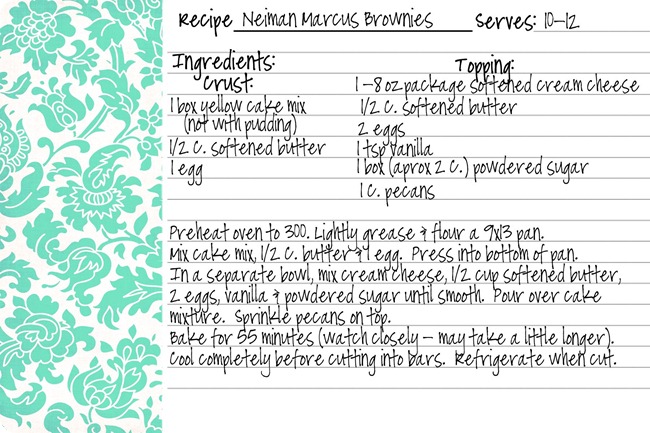 Recipe Neiman Marcus Brownies Serves: 10-12
Ingredients:
Crust:
1 box yellow cake mix
(not with pudding)
1/2 C. softened butter
1 egg
Topping:
1 - 8 oz package softened cream cheese
1/2 C. softened butter
2 eggs
1 tsp vanilla
1 box (aprox 2 C.) powdered sugar
1 C. pecans
Preheat oven to 300. Lightly grease & flour a 9x13 pan.
Mix cake mix, 1/2 C. butter & 1 egg. Press into bottom of pan.
In a separate bowl, mix cream cheese, 1/2 cup softened butter,
2 eggs, vanilla & powdered sugar until smooth. Pour over cake
mixture. Sprinkle pecans on top.
Bake for 55 minutes (watch closely – may take a little longer).
Cool completely before cutting into bars. Refrigerate when cut.